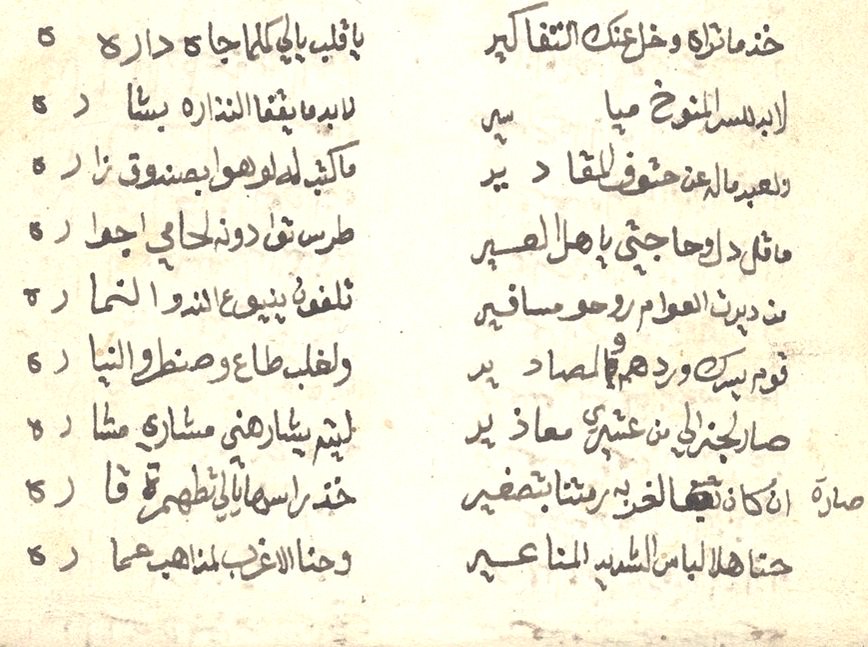 خذ ماتراه وخل عنك التفاكير ياقلب يالي كلما جاه داره ه
لابد للسر المنوخ ميا سير لابد ما يقفا النذاره بشا ر ه
ولعبد ماله عن حتوف المقا د ير ماكتب له لوهوا بصندوق نزا ر ه
ماقل دل وحاجتي ياهل العسير طرس توا دونه لحامي اجوا ر ه
من ديرت العوام روحو مسافير تلفون ينبوع الندو النما ر ه
قوم يسرك وردهم و المصاد ير ولغلب طاع وصنطر والنيا ر ه
صار لجنرالي من عشيري معاذ ير ليتم يشارهني مشاري مشا ر ه
ان كان الغربه رمتنا بتصغير خذ راسها يالي تطهر قا ر ه
صارة
حنا هلا لباس الشديد المناعسير وحنا الاغرب لمذاهب عما ر ه